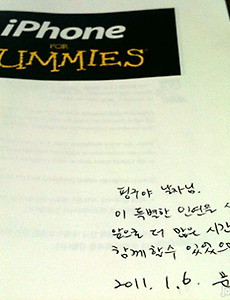 iPhone
FOR
UMMIES
이 특별한 인연을
앞으로 더 많은 시간
함께 할수 있었으
2011. 1. 6.